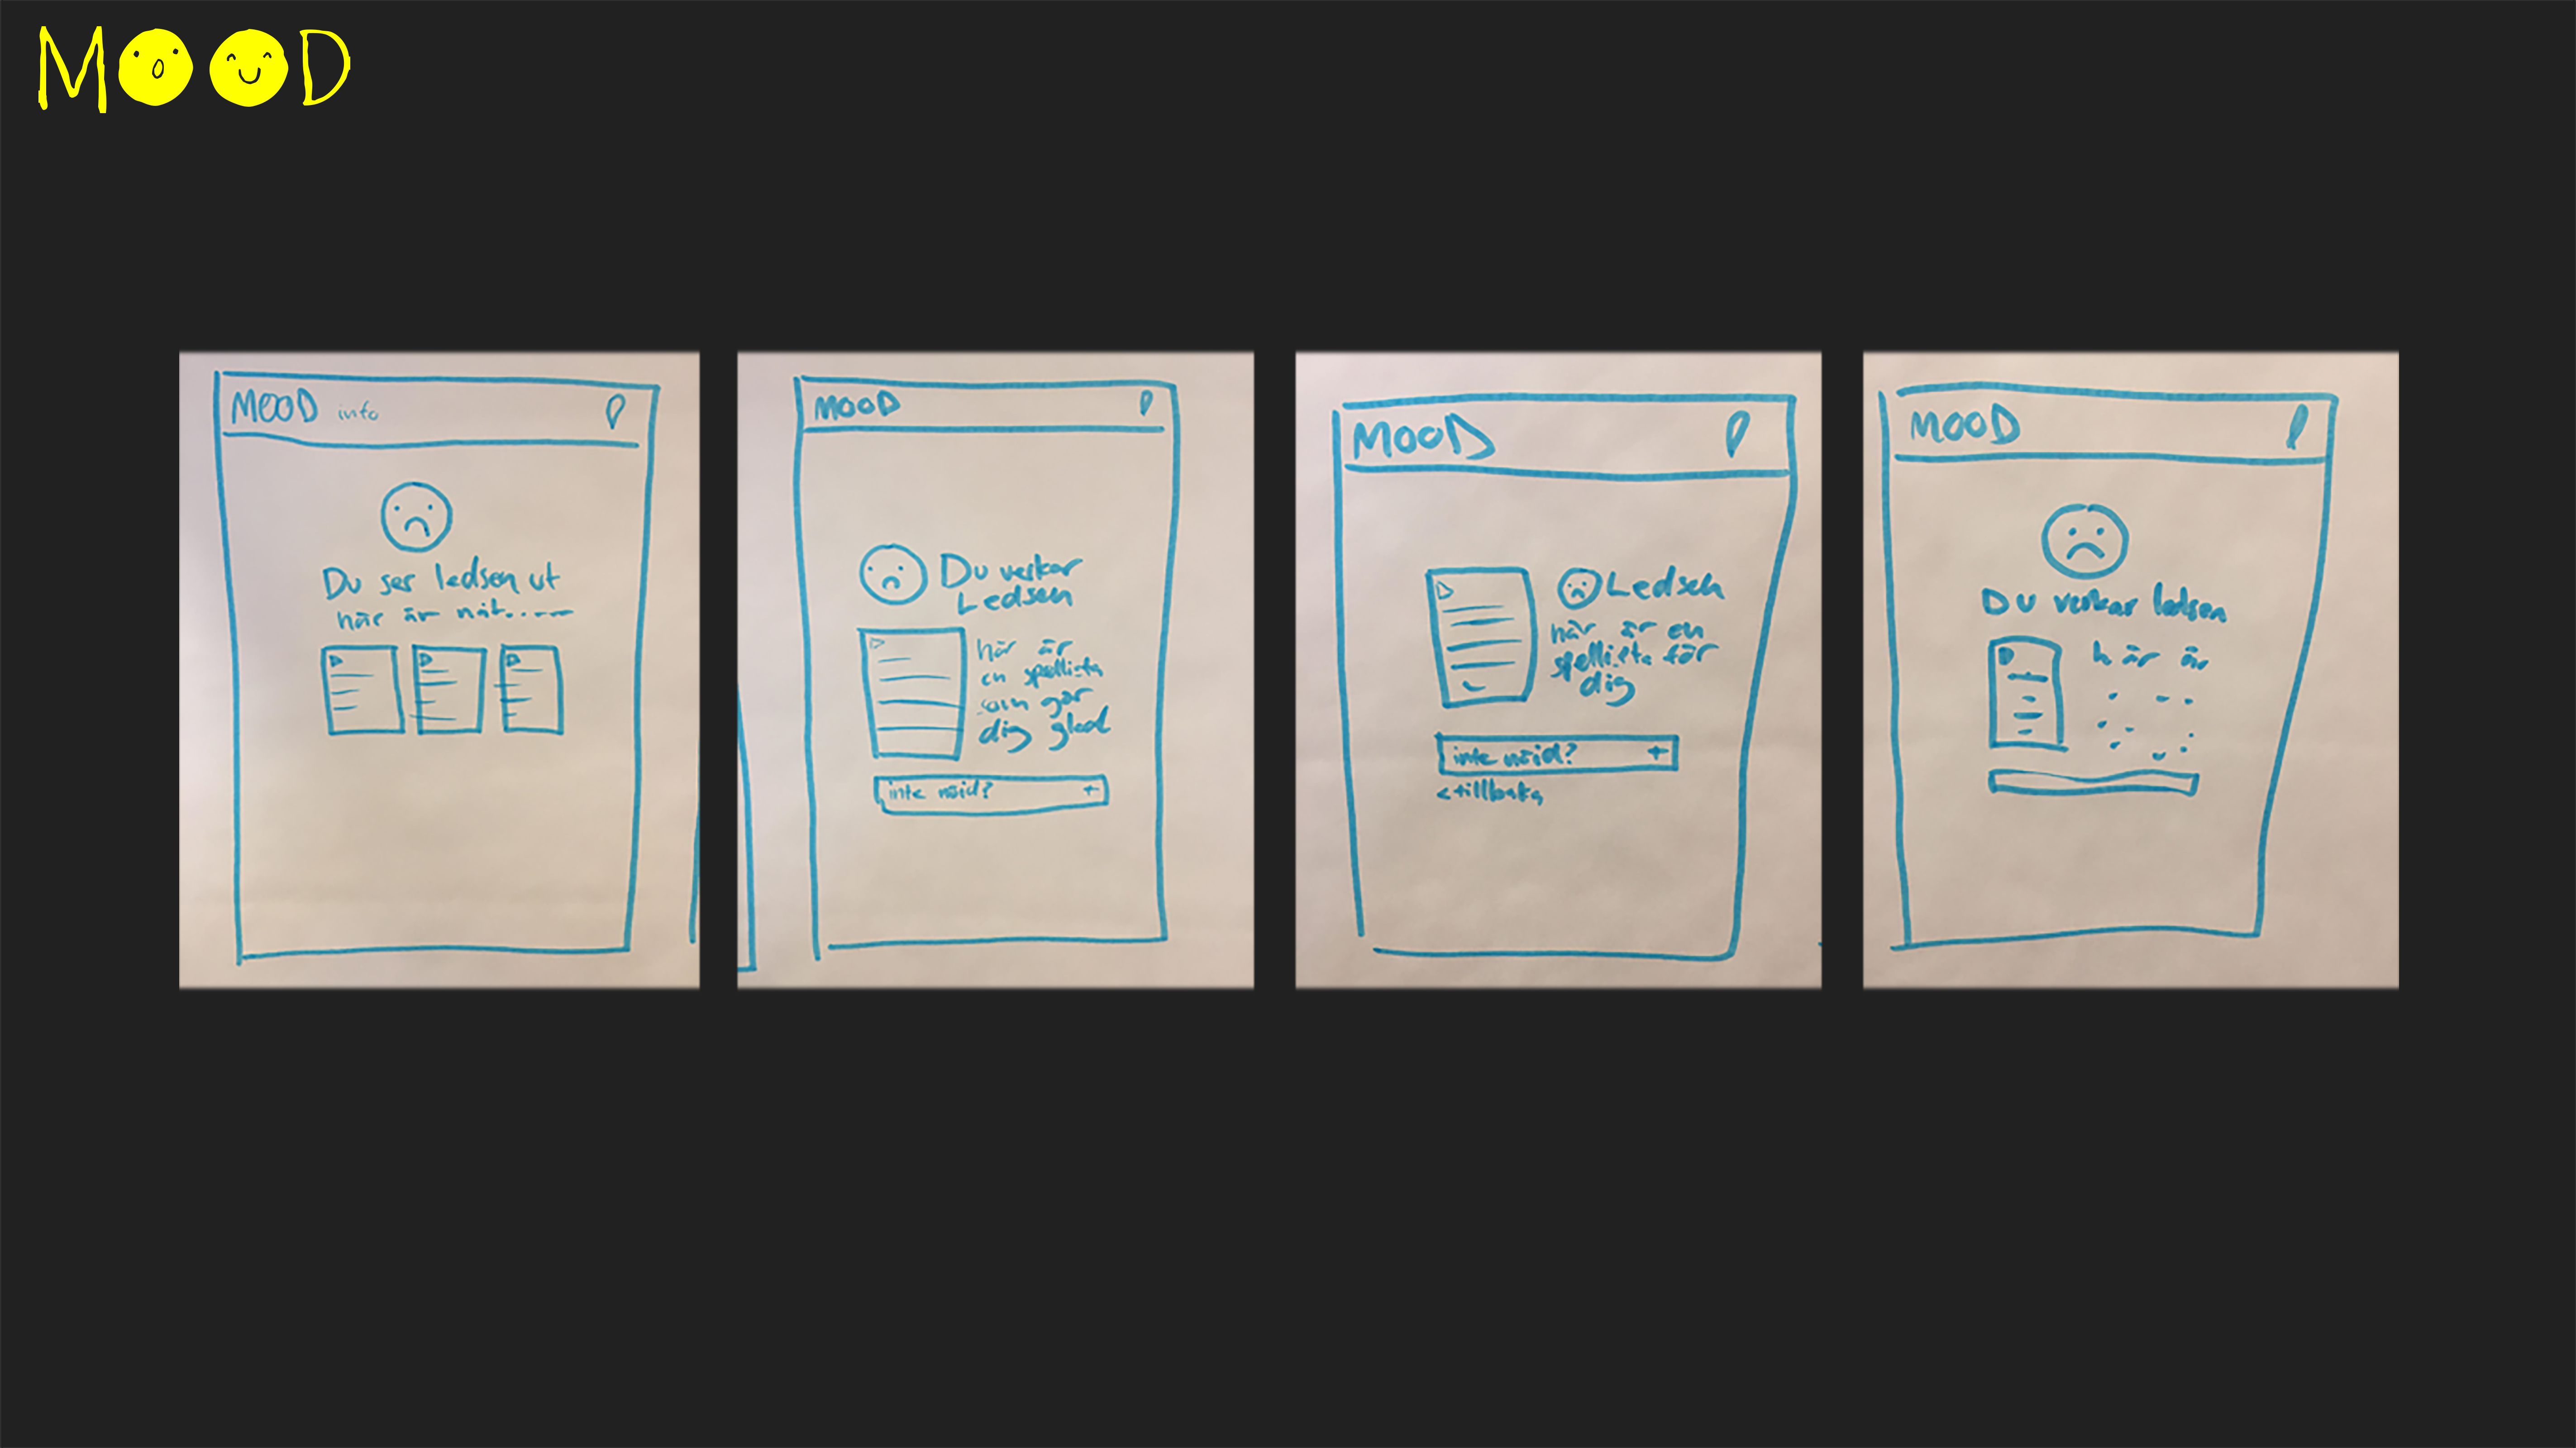 MOOD
MOOD info
Du ser ledsen ut
här är nåt.....
MOOD
Du verkar
Ledsen
här är
en spellista
som gör
dig glad
inte nöjd? +
MOOD
Ledsen
här är en
spellista för
dig
inte nöjd? +
<tillbaka
MOOD
Du verkar ledsen
här är